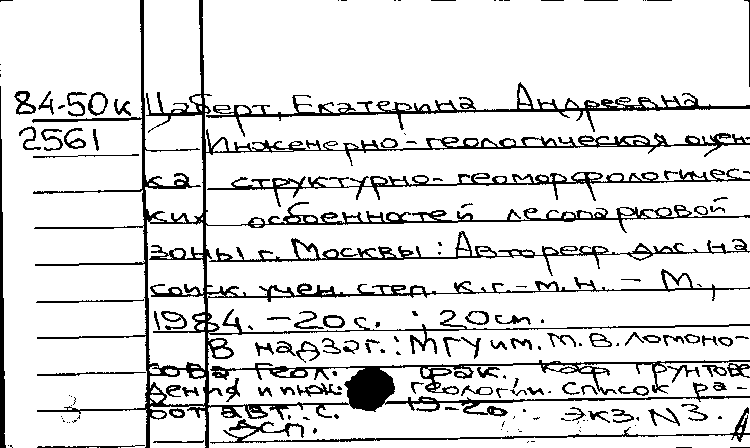 84-50к Цаберт, Екатерина Андреевна
2561 Инженерно-геологическая оцен-
ка структурно-геоморфологичес-
ких особенностей лесопарковой
зоны г. Москвы : Автореф. дис. на
соиск. учен. степ. к.г.-м.н. - М.,
1984. - 20 с. ; 20 см.
В надзаг.: МГУ им. М.В. Ломоно-
сова Геол. фак. Каф грунтове
дения и инж геологии. Список ра-
3 бот авт.: с. 19-20. экз. N3.